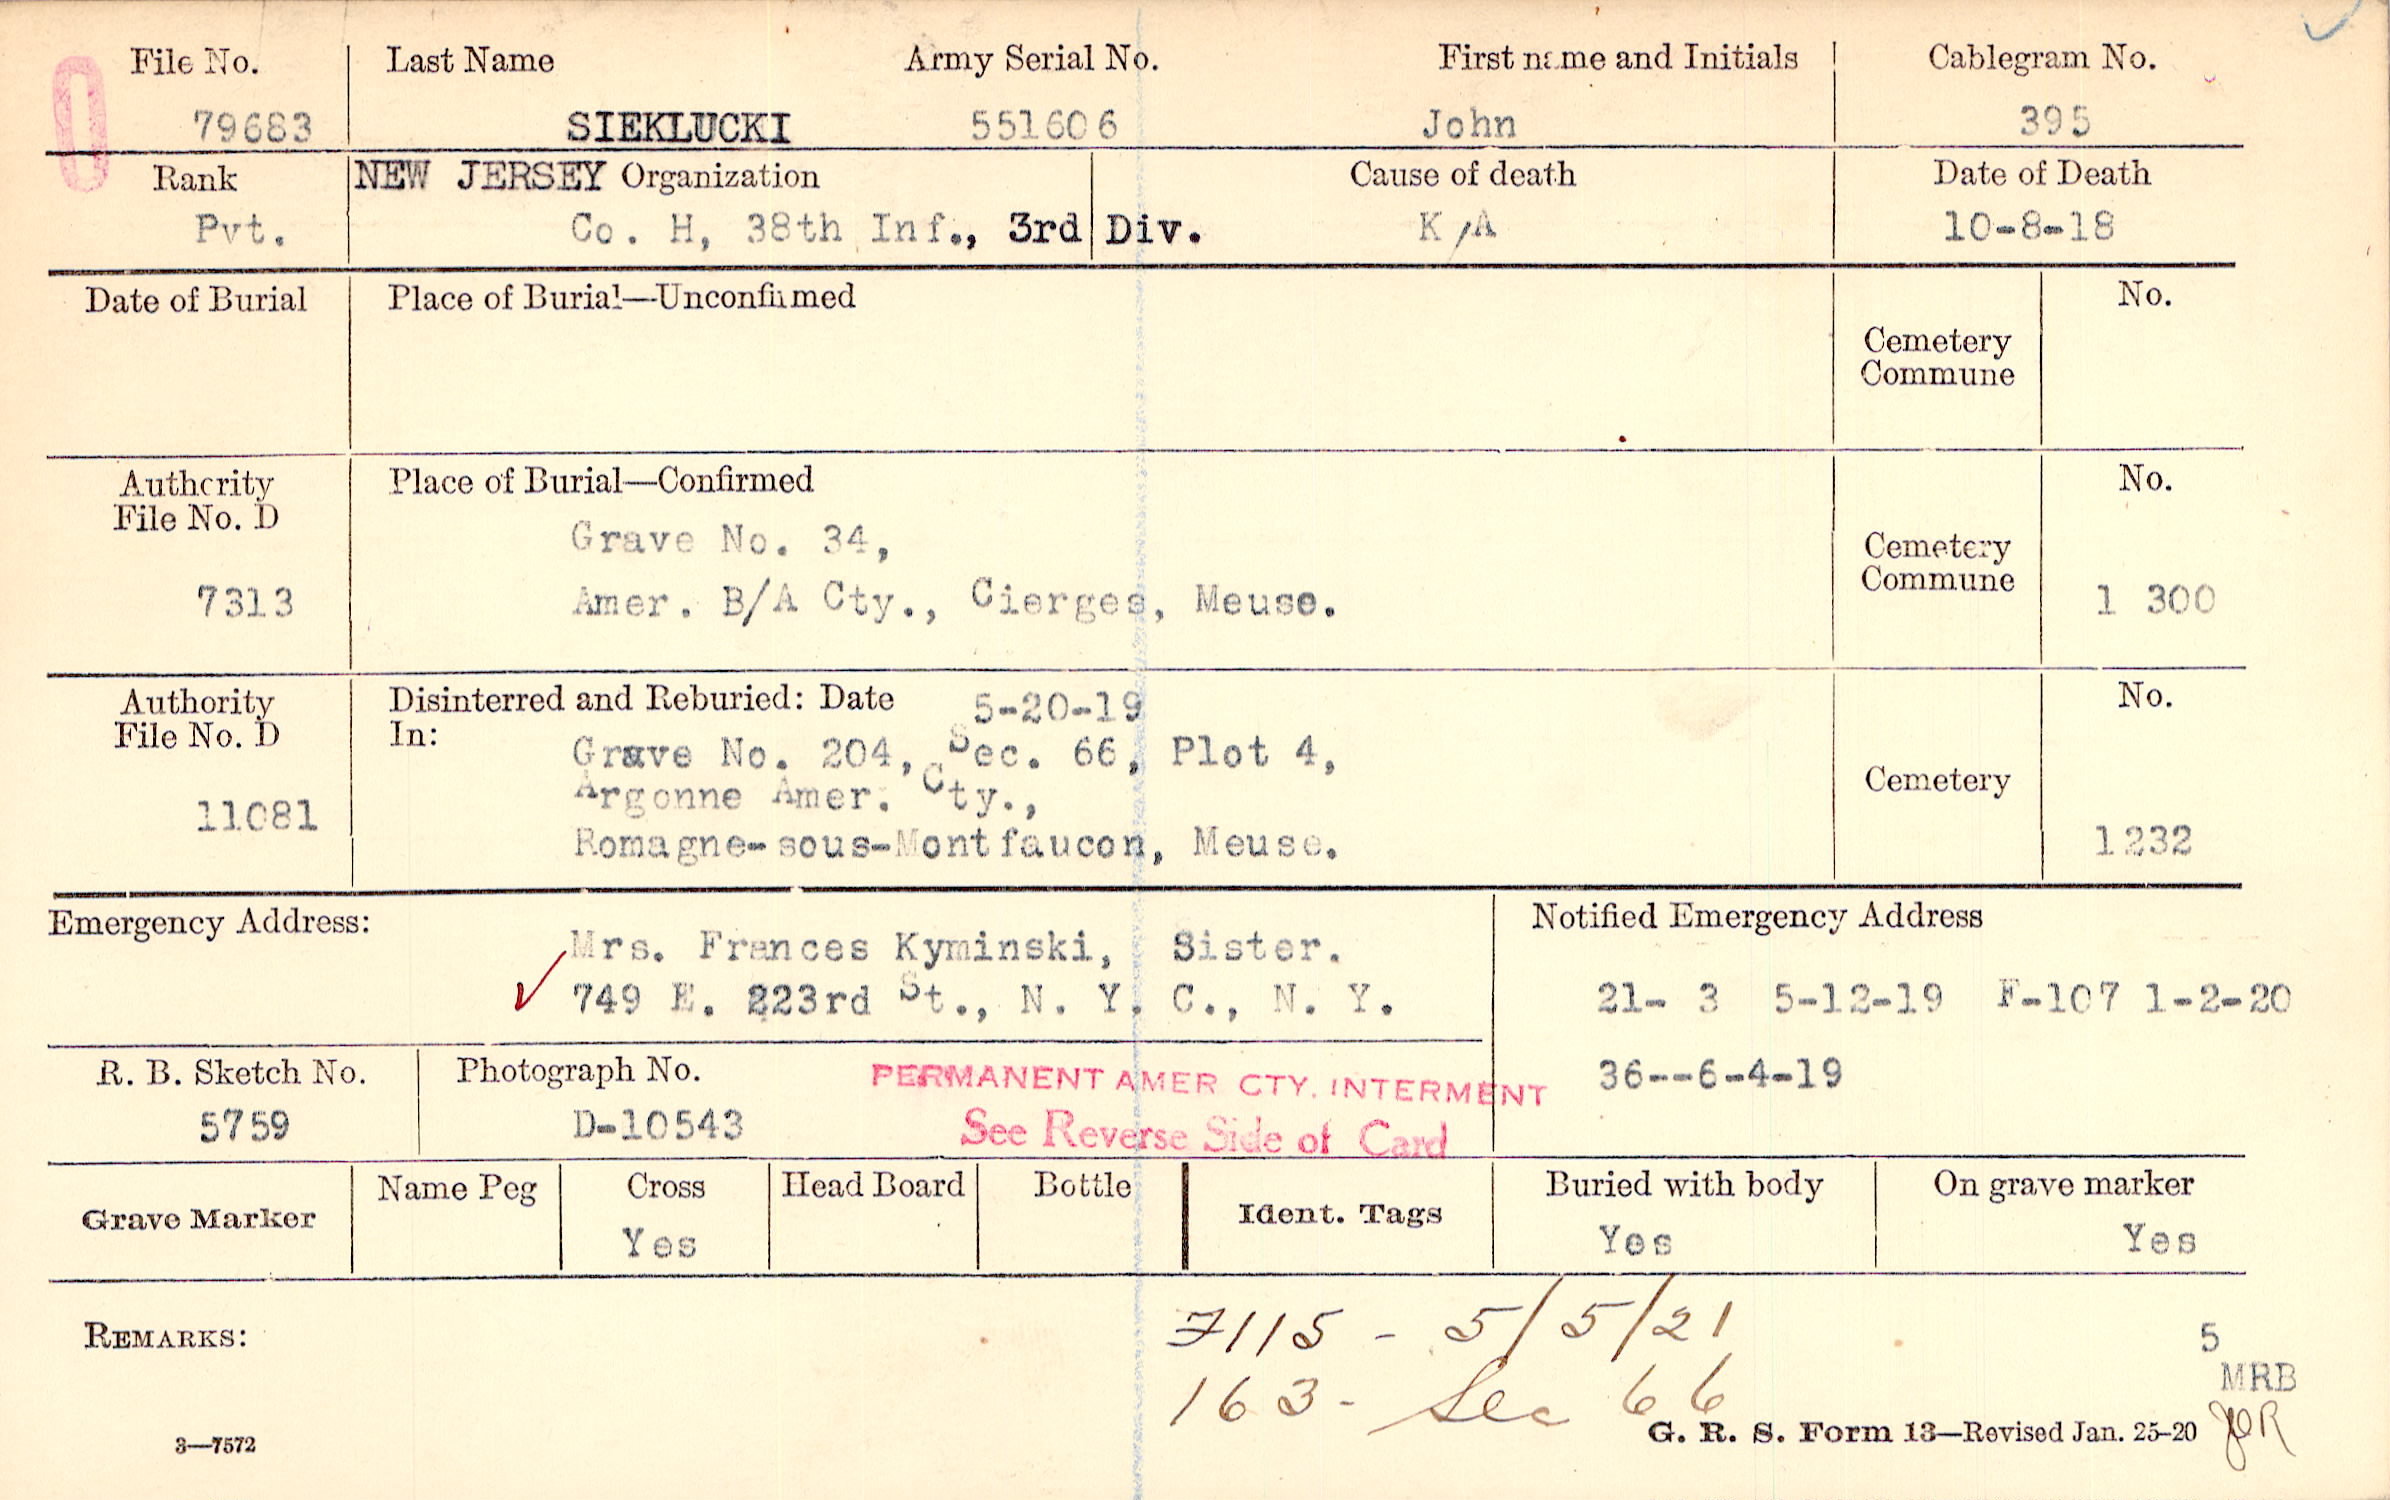 File No. Last Name Army Serial No. First name and Initials Cablegram No.
79683 SIEKLUCKI 551606 John 395
Rank NEW JERSEY Organization Cause of death Date of Death
Pvt. Co. H, 38th Inf., 3rd Div. K/A 10-8-18
Date of Burial Place of Burial—Unconfirmed No.
Cemetery
Commune
Authority Place of Burial—Confirmed No.
File No. D
Grave No. 34,
Cemetery
Commune
7313 Amer. B/A Cty., Cierges, Meuse. 1 300
Authority Disinterred and Reburied: Date 5-20-19 No.
File No. D In:
Grave No. 204, Sec. 66, Plot 4,
Argonne Amer. Cty., Cemetery
11081
Romagne-sous-Montfaucon, Meuse. 1232
Emergency Address: Notified Emergency Address
Mrs. Frances Kyminski, Sister.
749 E. 223rd St., N. Y. C., N. Y. 21- 3 5-12-19 F-107 1-2-20
R. B. Sketch No. Photograph No. PERMANENT AMER CTY. INTERMENT 36--6-4-19
5759 D-10543 See Reverse Side of Card
Grave Marker Name Peg Cross Head Board Bottle Ident. Tags Buried with body On grave marker
Yes Yes Yes
REMARKS: 7115 - 5/5/21 5
163 - Sec 66 MRB
3—7572 G. R. S. Form 13—Revised Jan. 25-20